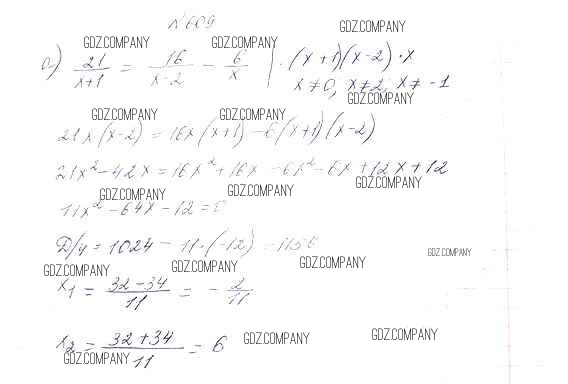 №609
GDZ.COMPANY
GDZ.COMPANY GDZ.COMPANY
а) 21/(x+1) = 16/(x-2) - 6/x | · (x+1)(x-2)·x
x≠0, x≠2, x≠-1
GDZ.COMPANY
GDZ.COMPANY GDZ.COMPANY
21x(x-2) = 16x(x+1) - 6(x+1)(x-2)
21x² - 42x = 16x² + 16x - 6x² - 6x + 12x + 12
GDZ.COMPANY GDZ.COMPANY GDZ.COMPANY
11x² - 64x - 12 = 0
Д/4 = 1024 - 11·(-12) = 1156
GDZ.COMPANY
GDZ.COMPANY GDZ.COMPANY GDZ.COMPANY
x₁ = (32-34)/11 = - 2/11
x₂ = (32+34)/11 = 6
GDZ.COMPANY GDZ.COMPANY GDZ.COMPANY